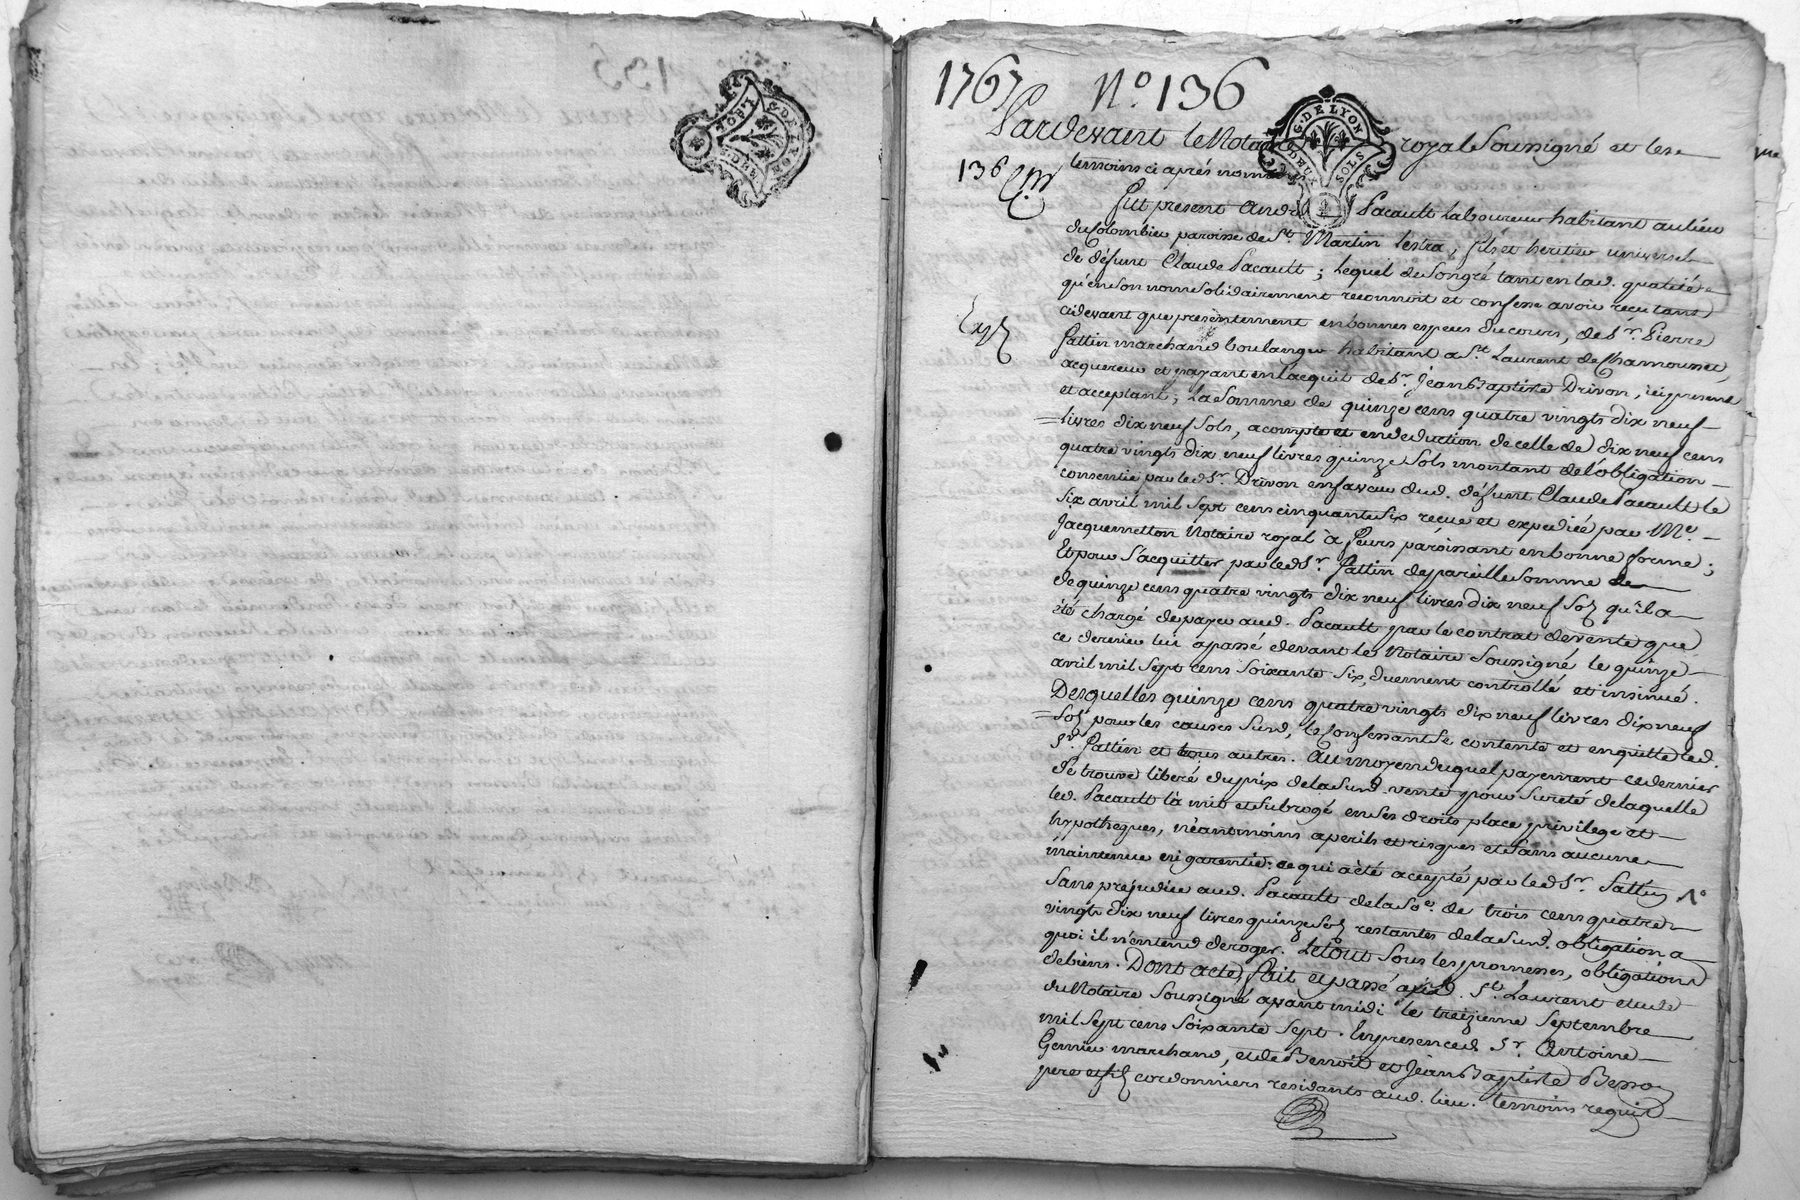 1767 N.o 136
G. DE LYON
DEUX SOLS
Pardevant le Notaire royal Soussigné et les
136
temoins ci aprés nommés
fut present André Pacault Laboureur habitant au lieu
du Colombier paroisse de St. Martin lestra, fils et heritier universel
de défunt Claude Pacault ; Lequel de son gré tant en lad. qualité
qu'en son nom solidairement reconnoit et confesse avoir reçu tant
cidevant que presentement en bonnes especes du cours, de Sr. Pierre
Expé
fattin marchand boulanger habitant a St. Laurent de Chamousset,
acquereur et payant en l'acquit de Sr. Jean Baptiste Drivon, ici present
et acceptant ; La Somme de quinze cens quatre vingts dix neuf
livres dix neuf sols, a compte et en deduction de celle de dix neuf cens
quatre vingts dix neuf livres quinze Sols montant de l'obligation
consentie par led. Sr. Drivon en faveur dud. défunt Claude Pacault le
six avril mil sept cens cinquante six reçue et expediée par Me.
Jacquemetton Notaire royal à feurs paroissant en bonne forme ;
Et pour s'acquitter par led. Sr. fattin de pareille somme de
de quinze cens quatre vingts dix neuf livres dix neuf sols qu'il a
été chargé de payer aud. Pacault par le contrat de vente que
ce dernier lui a passé devant le Notaire Soussigné le quinze
avril mil sept cens soixante six, duement controllé et insinué.
Desquelles quinze cens quatre vingts dix neuf livres dix neuf
sols pour les causes susd., le confessant se contente et en quitte led.
Sr. fattin et tous autres. Au moyen duquel payement ce dernier
se trouve liberé du prix de la susd. vente pour sureté de laquelle
led. Pacault l'a mis et subrogé en ses droits place privilege et
hypotheques, néantmoins a perils et risques et sans aucune
maintenue ni garentie ; ce qui a été accepté par led. Sr. fattin
sans prejudice aud. Pacault de la soe. de trois cens quatre
vingts dix neuf livres quinze sols restantes de la susd. obligation a
quoi il n'entend deroger. Le tout sous les promesses, obligations
de biens. Dont acte, fait et passé aud. St. Laurent etude
du Notaire Soussigné avant midi le treizieme Septembre
mil sept cens soixante sept. En presence de Sr. Antoine
Grenier marchand, et de Benoit et Jean Baptiste Besson
pere et fils cordonniers residants aud. lieu. temoins requis